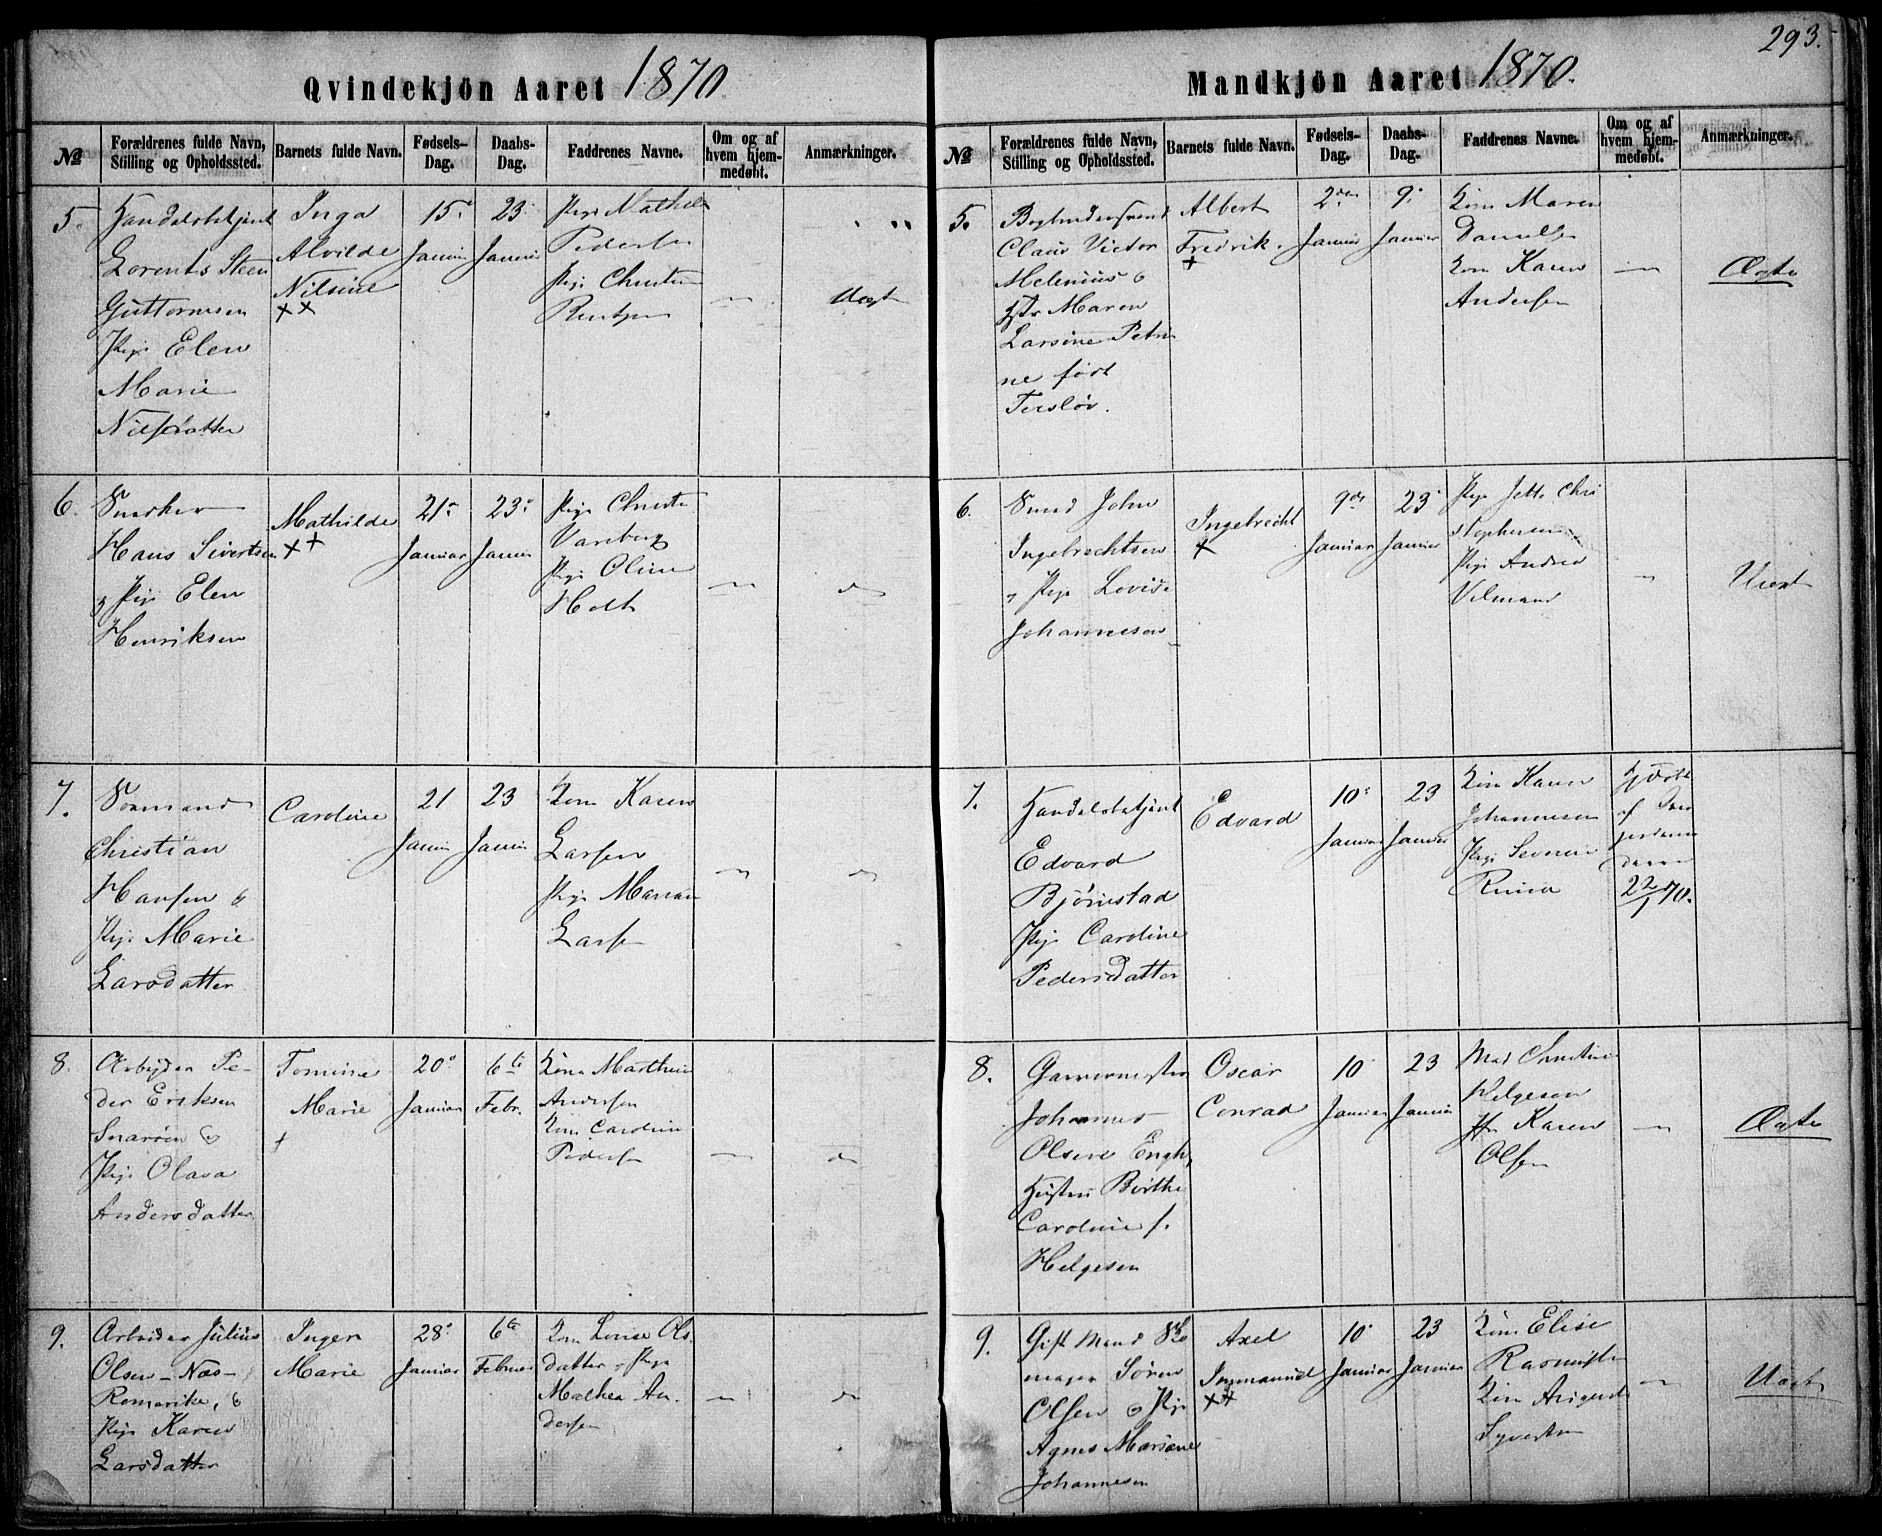 293.
Qvindekjön Aaret 1870
№
Forældrenes fulde Navn, Stilling og Opholdssted.
Barnets fulde Navn.
Fødsels-Dag.
Daabs-Dag.
Faddrenes Navne.
Om og af hvem hjemmedøbt.
Anmærkninger.
5.
Handelsbetjent
Lorents Steen
Guttormsen
Pige Elen
Marie
Nilsdatter
Inga
Alvilde
Nilsine
15
Januar
23
Januar
Pige
Pedersen
Pige
Uægt
6.
Snedker
Hans Sivertsen
Pige Elen
Henriksen
Mathilde
21
Januar
23
Januar
Pige
Pige Oline
Holt
do
7.
Sømand
Christian
Hansen &
Pige Marie
Larsdatter
Caroline
21
Januar
23
Januar
Kone Karen
Larsen
Pige Marian
Larsen
do
8.
Arbeider Pe-
der Eriksen
Snarøen &
Pige Olava
Andersdatter
Tomine
Marie
20
Januar
6te
Febr.
Kone
Andersen
Kone Caroline
Pedersen
do
9.
Arbeider Julius
Olsen - Næs -
Romerike, &
Pige Karen
Larsdatter
Inger
Marie
28
Januar
6te
Februar
Kone Lovise Ols
datter & Pige
Mathea An-
dersen
do
Mandkjön Aaret 1870.
№
Forældrenes fulde Navn, Stilling og Opholdssted.
Barnets fulde Navn.
Fødsels-Dag.
Daabs-Dag.
Faddrenes Navne.
Om og af hvem hjemmedøbt.
Anmærkninger.
5.
Bogbindersvend
Claus Victor
Melenius &
Maren
Larsine Petri
ne født
Tersløv.
Albert
Fredrik.
2den
Januar
9
Januar
Kone Maren
Danielsen
Kone Karen
Andersen
Ægte
6.
Smed John
Ingebrechtsen
& Pige Lovise
Johannesen
Ingebrecht
9de
Januar
23
Januar
Pige Jette Chri
stophersen
Pige Andrea
Uægt
7.
Handelsbetjent
Edvard
Bjørnstad
Pige Caroline
Pedersdatter
Edvard
10
Januar
23
Januar
Kone Karen
Johannesen
Pige
af
22/1 70.
8.
Garvermester
Johannes
Olsen Engh,
Hustru Birthe
Caroline f.
Helgesen
Oscar
Conrad
10
Januar
23
Januar
Mad
Helgesen
Karen
Olsen
Ægte
9.
Gift Mand Sko
mager Søren
Olsen & Pige
Agnes Mariane
Johannesen
Axel
Ingmanuel
10
Januar
23
Januar
Kone Elise
Rasmussen
Kone
Uægte